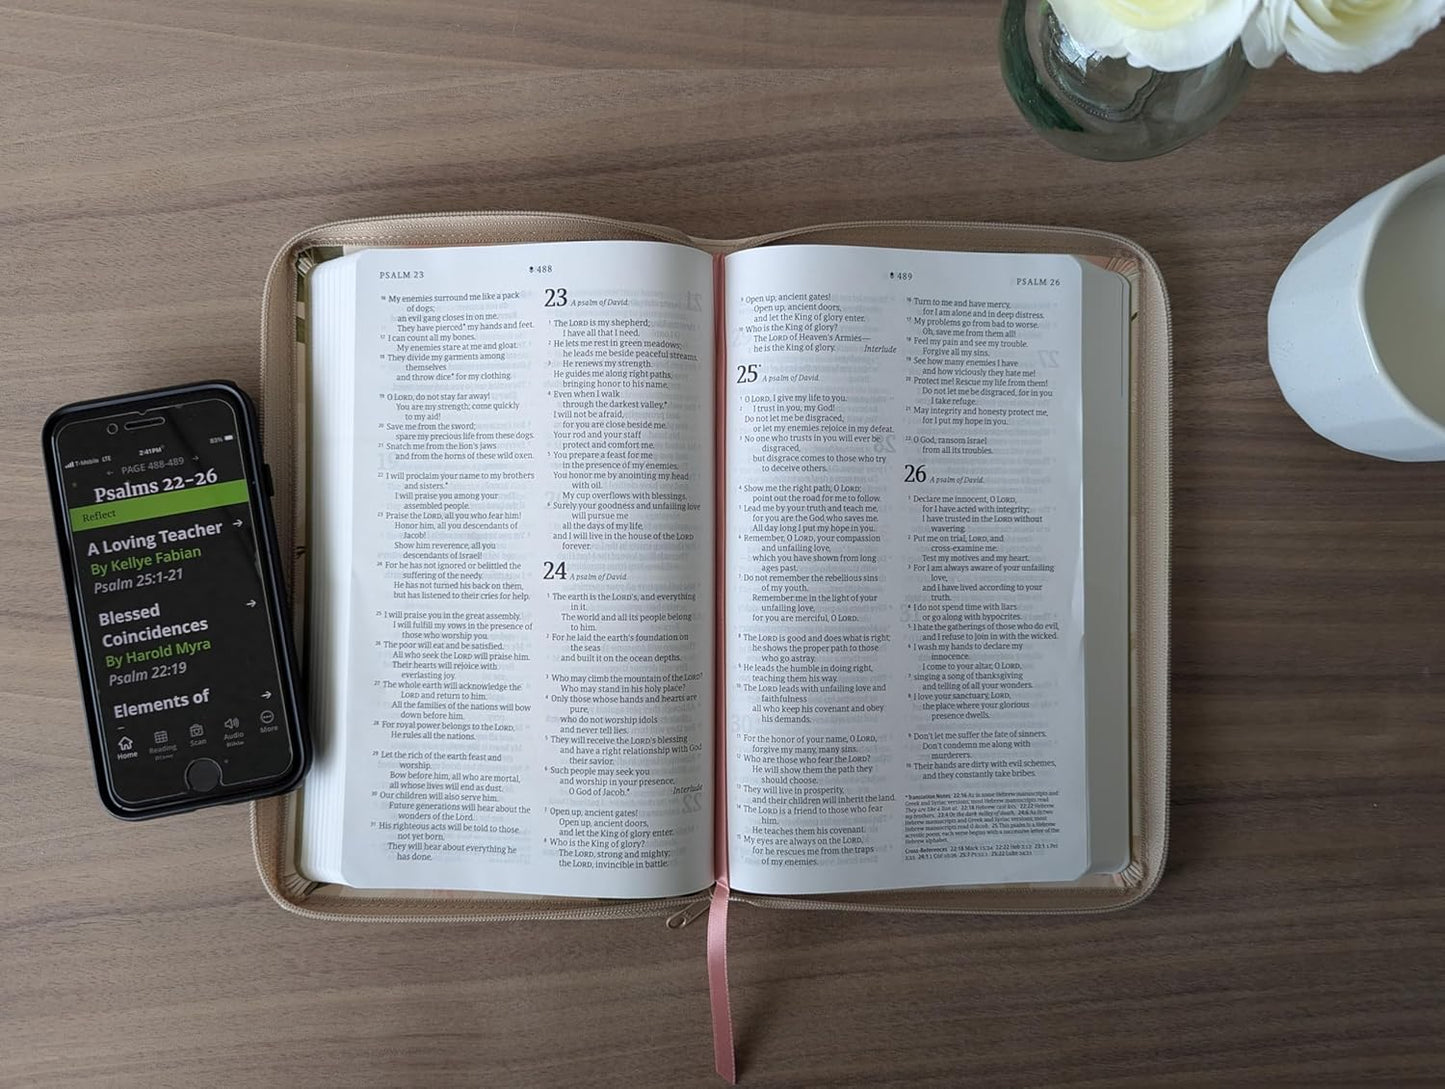 T-Mobile LTE
2:41PM
83%
← PAGE 488-489 →
Psalms 22-26
Reflect
A Loving Teacher →
By Kellye Fabian
Psalm 25:1-21
Blessed →
Coincidences
By Harold Myra
Psalm 22:19
Elements of →
Home
Reading
Scan
Audio
Bible
More
PSALM 23
488
16 My enemies surround me like a pack
of dogs;
an evil gang closes in on me.
They have pierced* my hands and feet.
17 I can count all my bones.
My enemies stare at me and gloat.
18 They divide my garments among
themselves
and throw dice* for my clothing.
19 O LORD, do not stay far away!
You are my strength; come quickly
to my aid!
20 Save me from the sword;
spare my precious life from these dogs.
21 Snatch me from the lion's jaws
and from the horns of these wild oxen.
22 I will proclaim your name to my brothers
and sisters.*
I will praise you among your
assembled people.
23 Praise the LORD, all you who fear him!
Honor him, all you descendants of
Jacob!
Show him reverence, all you
descendants of Israel!
24 For he has not ignored or belittled the
suffering of the needy.
He has not turned his back on them,
but has listened to their cries for help.
25 I will praise you in the great assembly.
I will fulfill my vows in the presence of
those who worship you.
26 The poor will eat and be satisfied.
All who seek the LORD will praise him.
Their hearts will rejoice with
everlasting joy.
27 The whole earth will acknowledge the
LORD and return to him.
All the families of the nations will bow
down before him.
28 For royal power belongs to the LORD.
He rules all the nations.
29 Let the rich of the earth feast and
worship.
Bow before him, all who are mortal,
all whose lives will end as dust.
30 Our children will also serve him.
Future generations will hear about the
wonders of the Lord.
31 His righteous acts will be told to those
not yet born.
They will hear about everything he
has done.
23 A psalm of David.
1 The LORD is my shepherd;
I have all that I need.
2 He lets me rest in green meadows;
he leads me beside peaceful streams.
3 He renews my strength.
He guides me along right paths,
bringing honor to his name.
4 Even when I walk
through the darkest valley,*
I will not be afraid,
for you are close beside me.
Your rod and your staff
protect and comfort me.
5 You prepare a feast for me
in the presence of my enemies.
You honor me by anointing my head
with oil.
My cup overflows with blessings.
6 Surely your goodness and unfailing love
will pursue me
all the days of my life,
and I will live in the house of the LORD
forever.
24 A psalm of David.
1 The earth is the LORD's, and everything
in it.
The world and all its people belong
to him.
2 For he laid the earth's foundation on
the seas
and built it on the ocean depths.
3 Who may climb the mountain of the LORD?
Who may stand in his holy place?
4 Only those whose hands and hearts are
pure,
who do not worship idols
and never tell lies.
5 They will receive the LORD's blessing
and have a right relationship with God
their savior.
6 Such people may seek you
and worship in your presence,
O God of Jacob.* Interlude
7 Open up, ancient gates!
Open up, ancient doors,
and let the King of glory enter.
8 Who is the King of glory?
The LORD, strong and mighty;
the LORD, invincible in battle.
489
PSALM 26
9 Open up, ancient gates!
Open up, ancient doors,
and let the King of glory enter.
10 Who is the King of glory?
The LORD of Heaven's Armies—
he is the King of glory. Interlude
25* A psalm of David.
1 O LORD, I give my life to you.
2 I trust in you, my God!
Do not let me be disgraced,
or let my enemies rejoice in my defeat.
3 No one who trusts in you will ever be
disgraced,
but disgrace comes to those who try
to deceive others.
4 Show me the right path, O LORD;
point out the road for me to follow.
5 Lead me by your truth and teach me,
for you are the God who saves me.
All day long I put my hope in you.
6 Remember, O LORD, your compassion
and unfailing love,
which you have shown from long
ages past.
7 Do not remember the rebellious sins
of my youth.
Remember me in the light of your
unfailing love,
for you are merciful, O LORD.
8 The LORD is good and does what is right;
he shows the proper path to those
who go astray.
9 He leads the humble in doing right,
teaching them his way.
10 The LORD leads with unfailing love and
faithfulness
all who keep his covenant and obey
his demands.
11 For the honor of your name, O LORD,
forgive my many, many sins.
12 Who are those who fear the LORD?
He will show them the path they
should choose.
13 They will live in prosperity,
and their children will inherit the land.
14 The LORD is a friend to those who fear
him.
He teaches them his covenant.
15 My eyes are always on the LORD,
for he rescues me from the traps
of my enemies.
16 Turn to me and have mercy,
for I am alone and in deep distress.
17 My problems go from bad to worse.
Oh, save me from them all!
18 Feel my pain and see my trouble.
Forgive all my sins.
19 See how many enemies I have
and how viciously they hate me!
20 Protect me! Rescue my life from them!
Do not let me be disgraced, for in you
I take refuge.
21 May integrity and honesty protect me,
for I put my hope in you.
22 O God, ransom Israel
from all its troubles.
26 A psalm of David.
1 Declare me innocent, O LORD,
for I have acted with integrity;
I have trusted in the LORD without
wavering.
2 Put me on trial, LORD, and
cross-examine me.
Test my motives and my heart.
3 For I am always aware of your unfailing
love,
and I have lived according to your
truth.
4 I do not spend time with liars
or go along with hypocrites.
5 I hate the gatherings of those who do evil,
and I refuse to join in with the wicked.
6 I wash my hands to declare my
innocence.
I come to your altar, O LORD,
7 singing a song of thanksgiving
and telling of all your wonders.
8 I love your sanctuary, LORD,
the place where your glorious
presence dwells.
9 Don't let me suffer the fate of sinners.
Don't condemn me along with
murderers.
10 Their hands are dirty with evil schemes,
and they constantly take bribes.
*Translation Notes: 22:16 As in some Hebrew manuscripts and
Greek and Syriac versions; most Hebrew manuscripts read